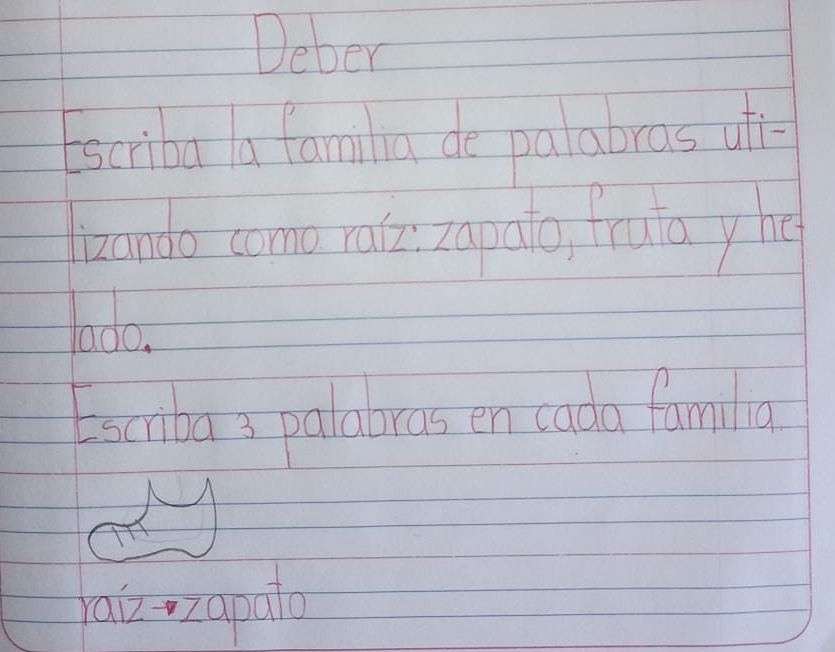 Deber
Escriba la familia de palabras uti-
lizando como raíz: zapato, fruta y he-
lado.
Escriba 3 palabras en cada familia.
raíz → zapato